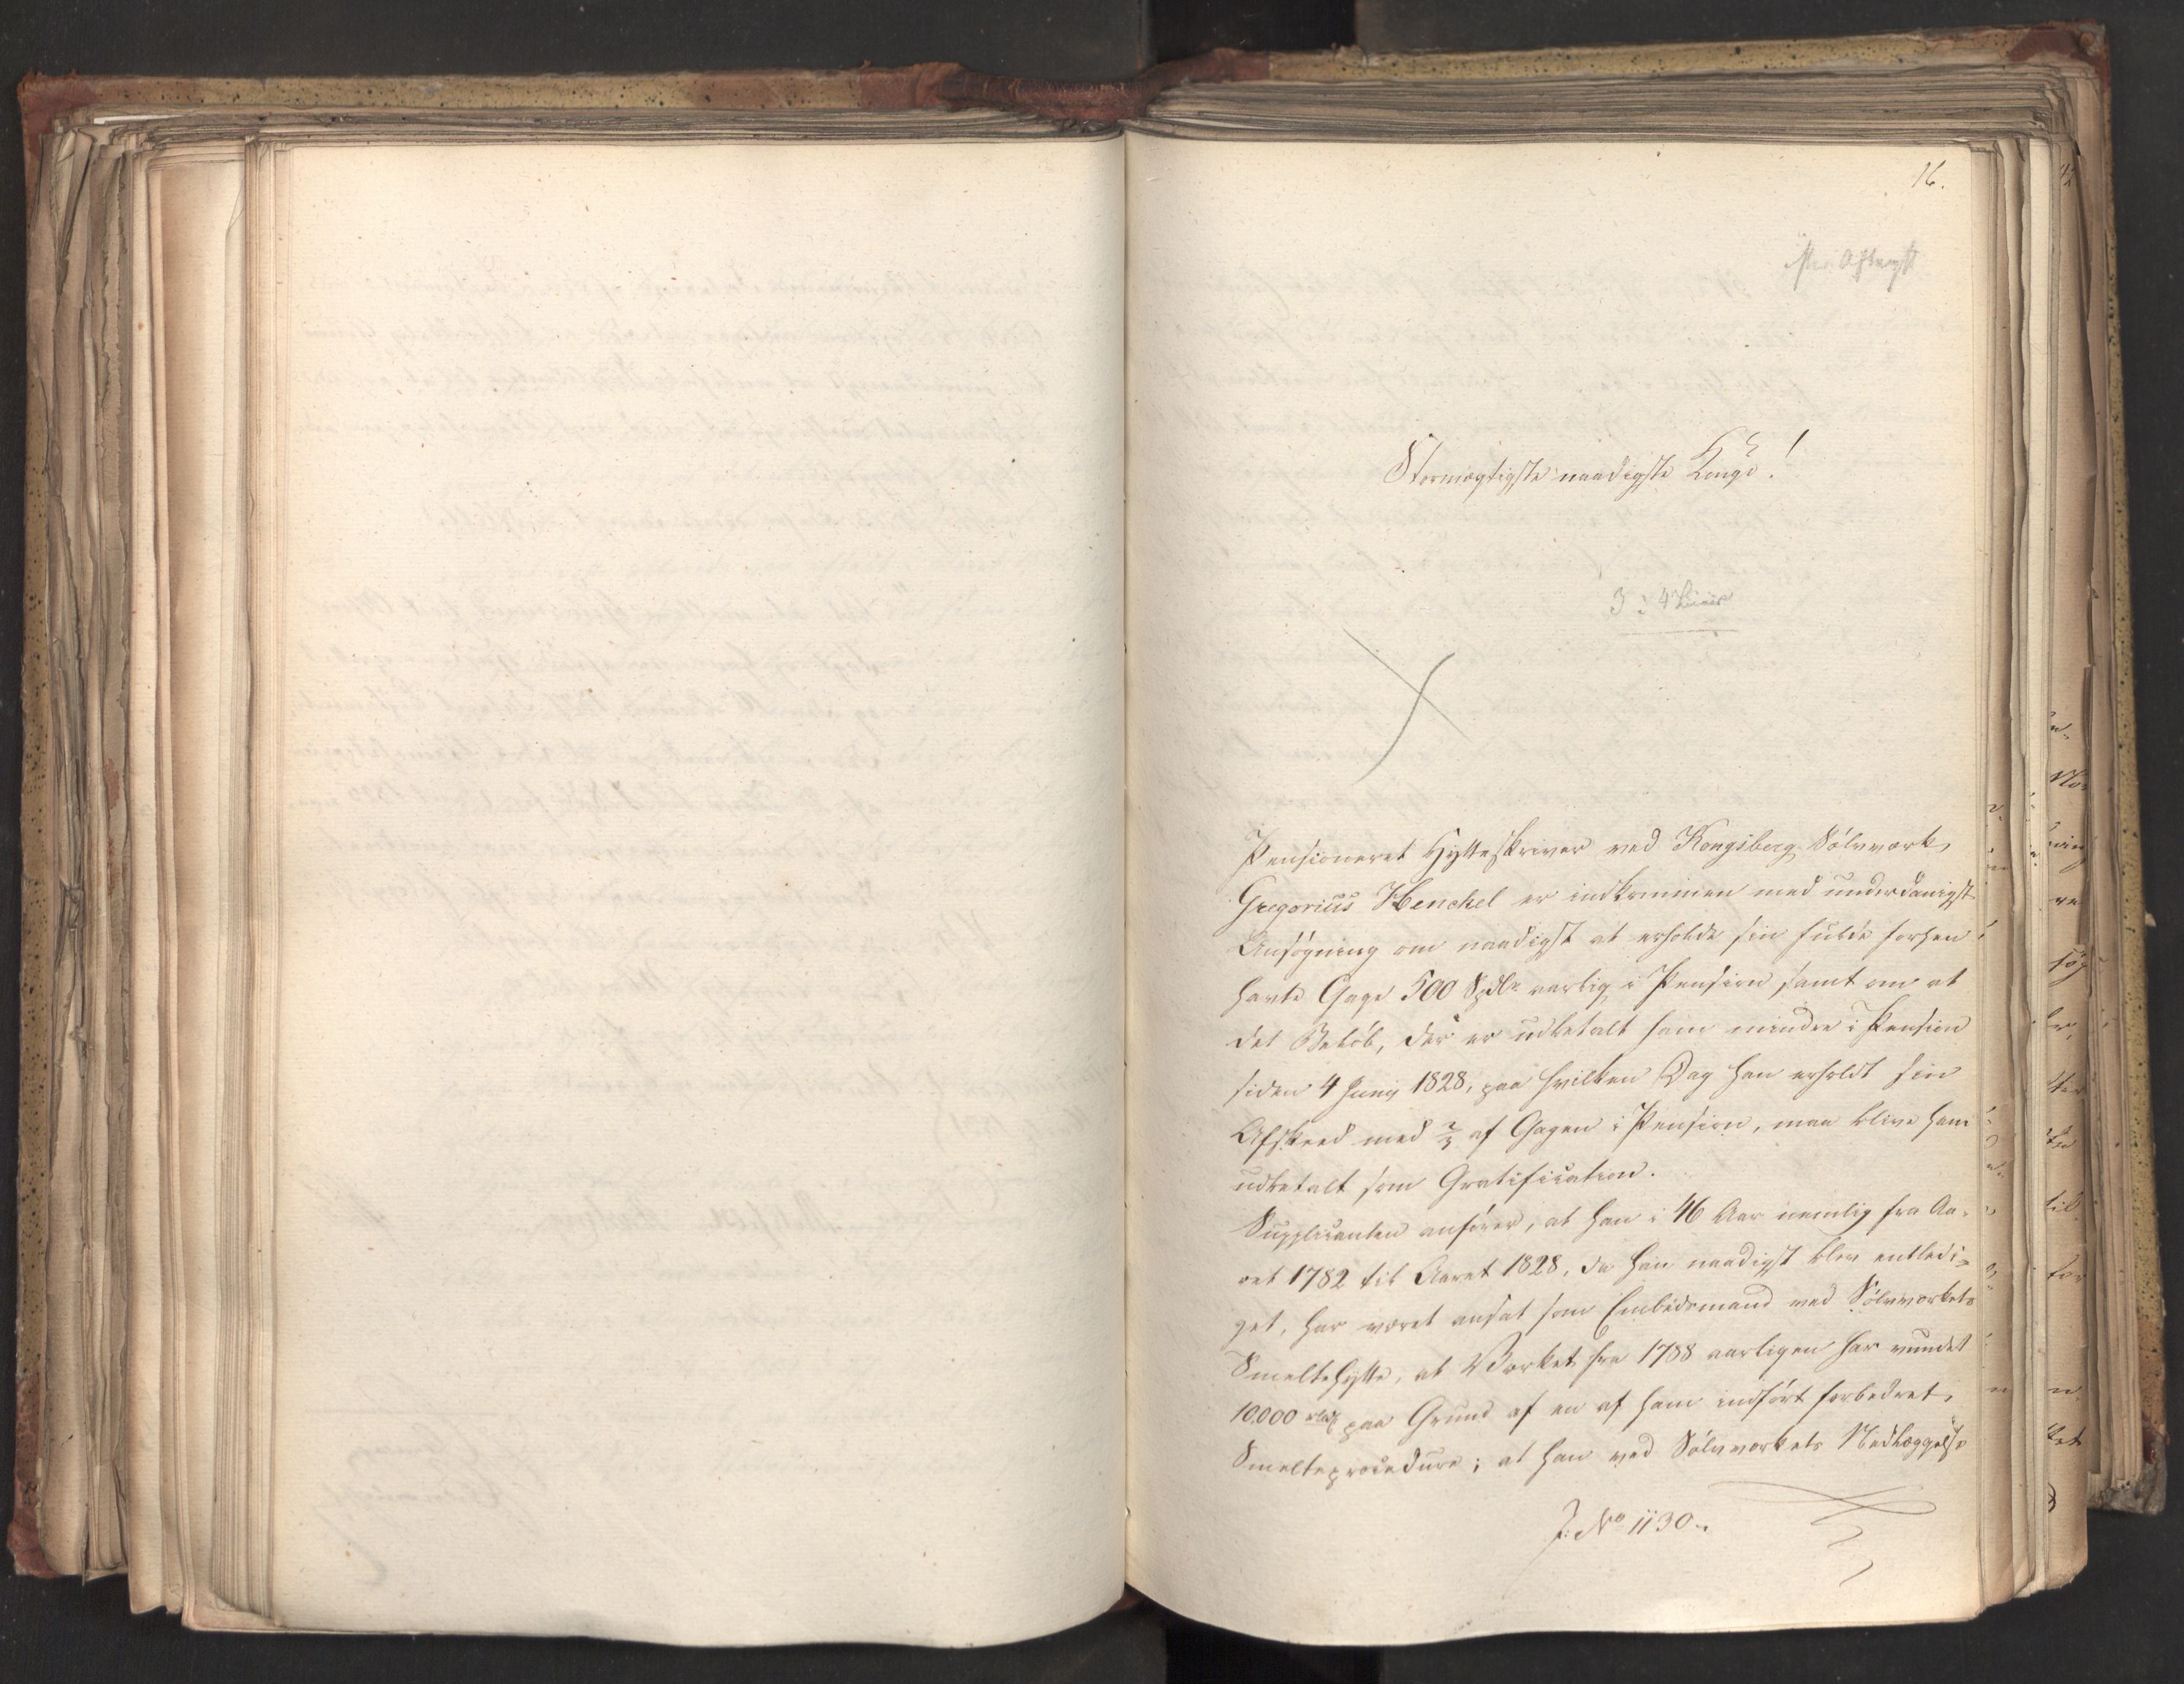 16.
Stormægtigste naadigste Konge!
3 à 4 Linier
Pensioneret Hytteskriver ved Kongsberg Sölvværk,
Gregorius Henchel er indkommen med underdanigst
Ansögning om naadigst at erholde sin fulde forhen
havte Gage 500 Spdlr aarlig i Pension samt om at
det Belöb, der er udbetalt ham mindre i Pension
siden 4 Junij 1828, paa hvilken Dag han erholdt sin
Afskeed med 2/3 af Gagen i Pension, maa blive ham
udbetalt som Gratification.
Supplicanten anförer, at han i 46 Aar nemlig fra Aa-
ret 1782 til Aaret 1828, da han naadigst blev entledi-
get, har været ansat som Embedsmand ved Sölvværkets
Smeltehytte, at Værket fra 1788 aarligen har vundet
10.000 paa Grund af en af ham indfört forbedret
Smelteprocedure; at han ved Sölvværkets Nedlæggelse
J. No 1130.